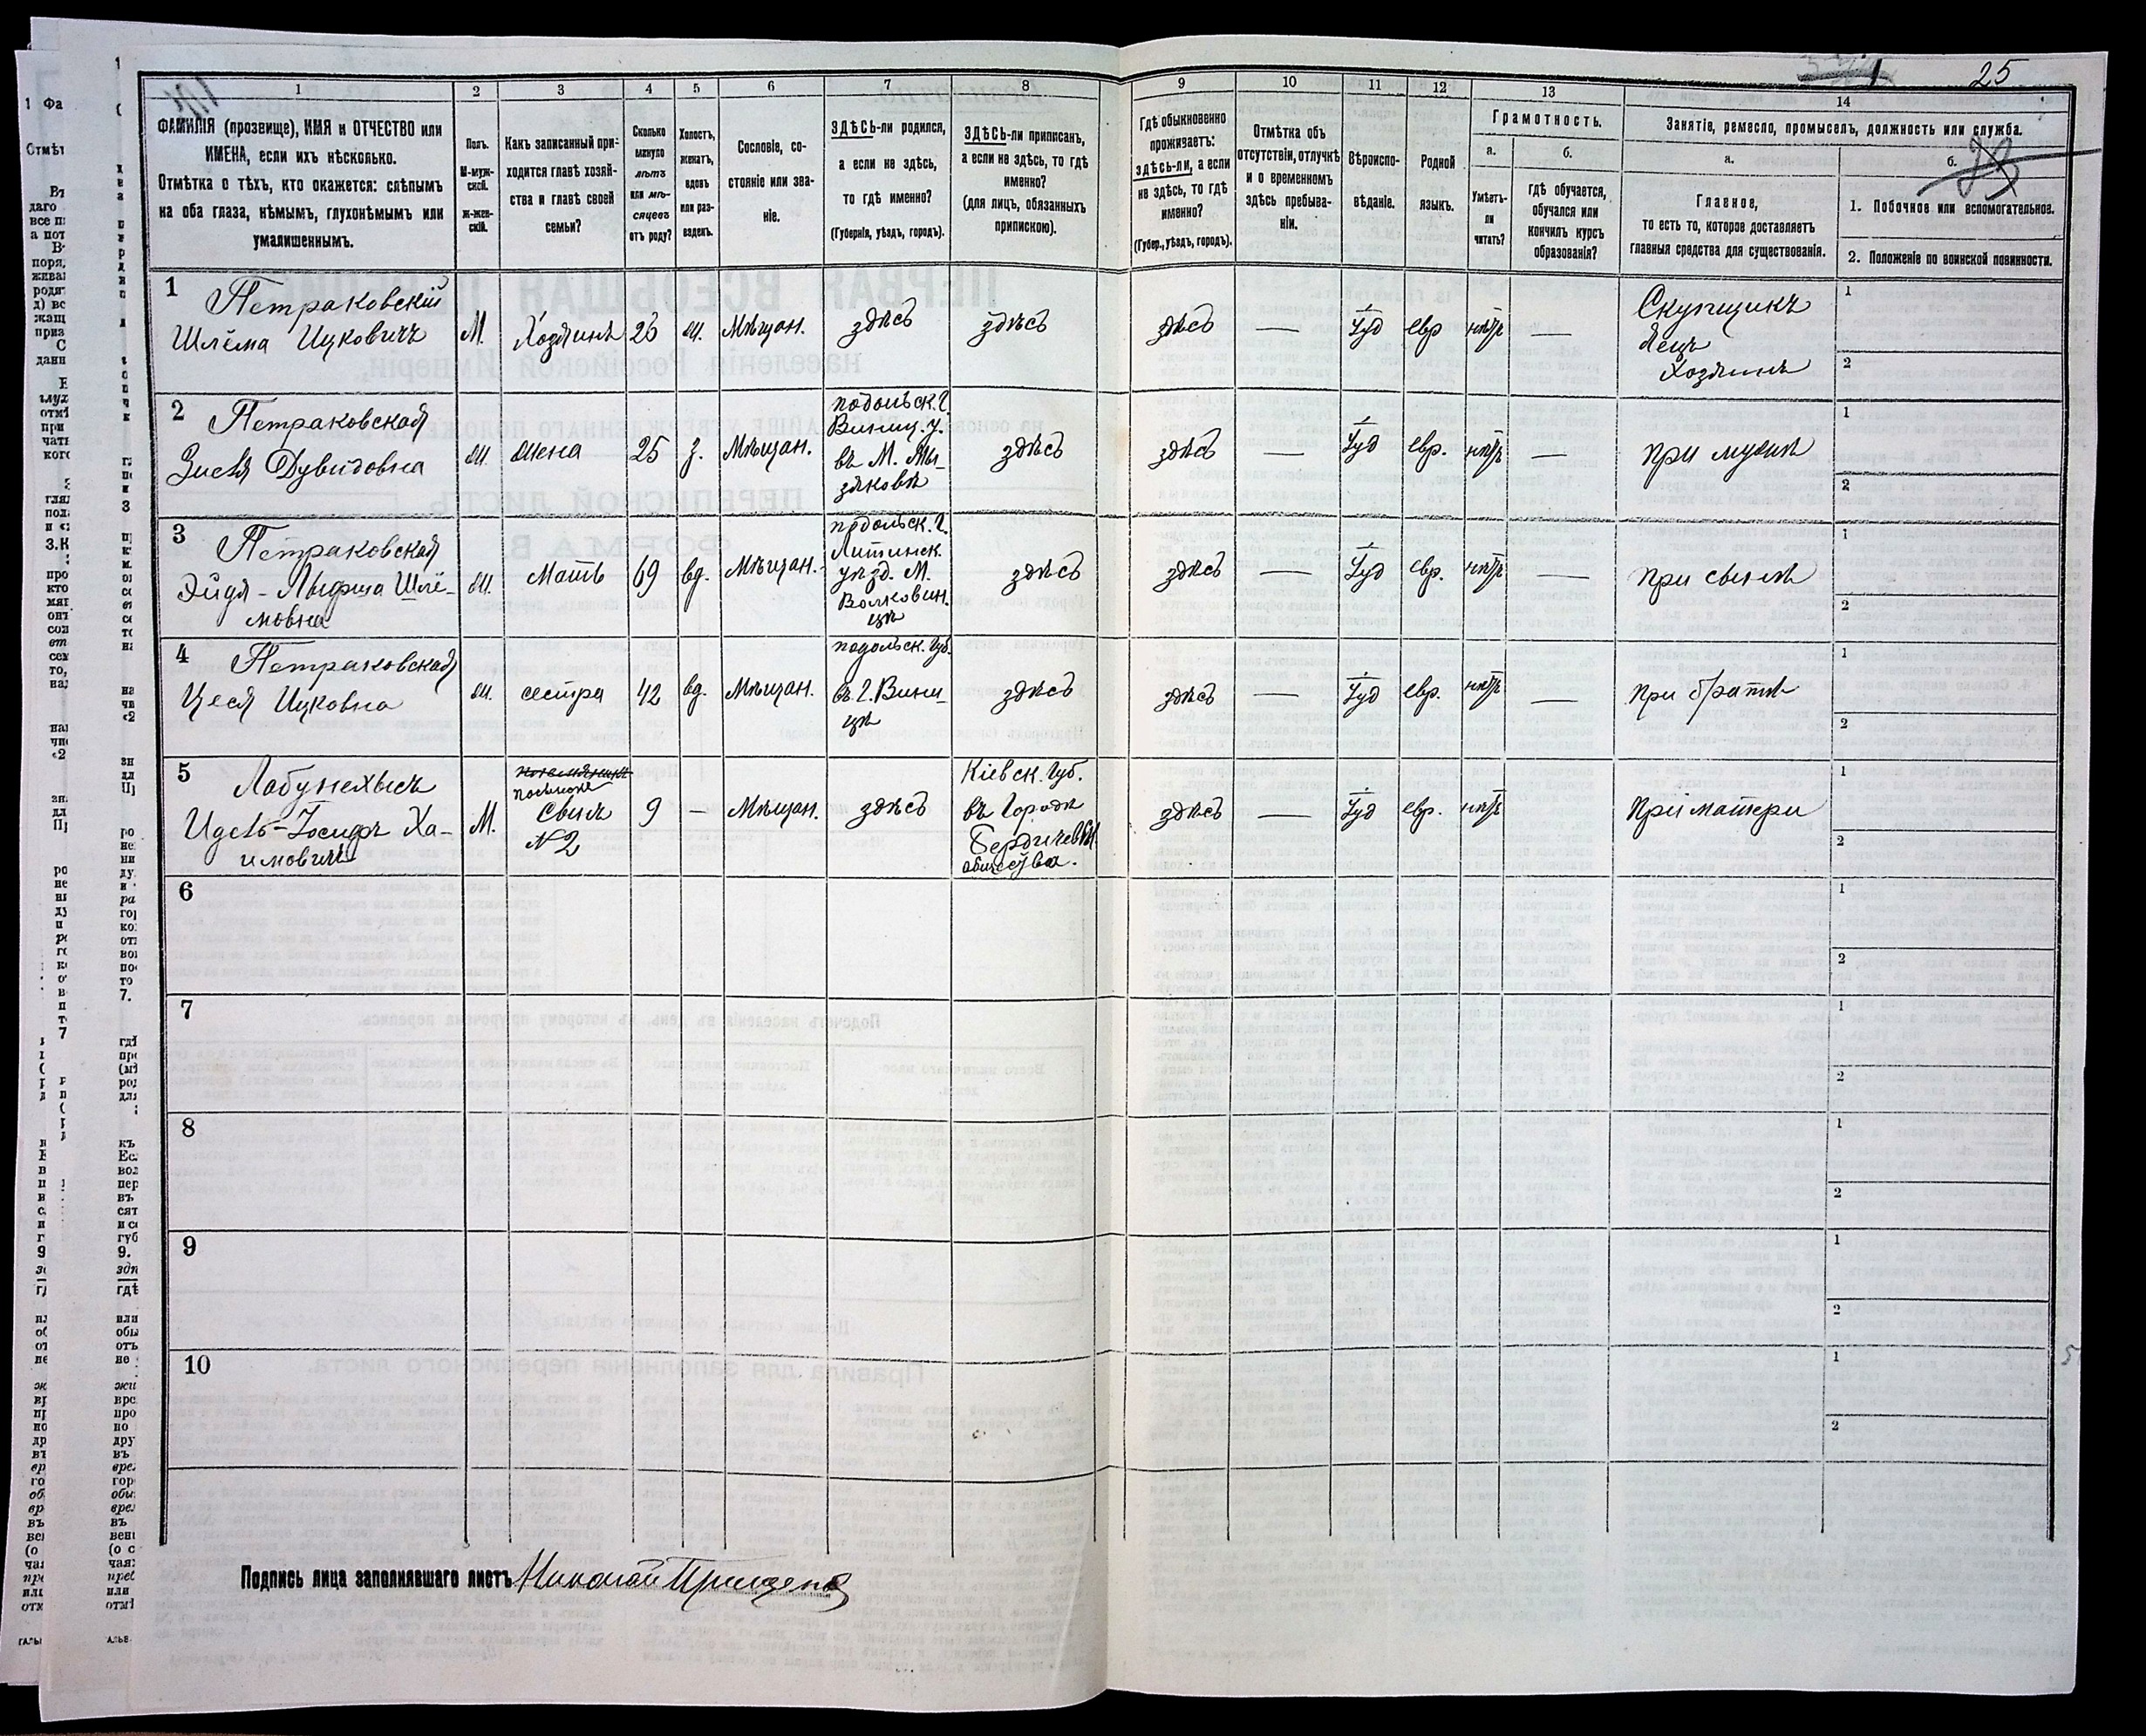 25
1
2
3
4
5
6
7
8
9
10
11
12
13
14
ФАМИЛІЯ (прозвище), ИМЯ и ОТЧЕСТВО или
ИМЕНА, если ихъ нѣсколько.
Отмѣтка о тѣхъ, кто окажется: слѣпымъ
на оба глаза, нѣмымъ, глухонѣмымъ или
умалишеннымъ.
Полъ.
М-муж-
ской.
Ж-жен-
скій.
Какъ записанный при-
ходится главѣ хозяй-
ства и главѣ своей
семьи?
Сколько
минуло
лѣтъ
или мѣ-
сяцевъ
отъ роду?
Холостъ,
женатъ,
вдовъ
или раз-
веденъ.
Сословіе, со-
стояніе или зва-
ніе.
ЗДѢСЬ-ли родился,
а если не здѣсь,
то гдѣ именно?
(Губернія, уѣздъ, городъ).
ЗДѢСЬ-ли приписанъ,
а если не здѣсь, то гдѣ
именно?
(для лицъ, обязанныхъ
припискою).
Гдѣ обыкновенно
проживаетъ:
здѣсь-ли, а если
не здѣсь, то гдѣ
именно?
(Губер., уѣздъ, городъ).
Отмѣтка объ
отсутствіи, отлучкѣ
и о временномъ
здѣсь пребыва-
ніи.
Вѣроиспо-
вѣданіе.
Родной
языкъ.
Грамотность.
а.
Умѣетъ-
ли
читать?
б.
гдѣ обучается,
обучался или
кончилъ курсъ
образованія?
Занятіе, ремесло, промыселъ, должность или служба.
а.
Главное,
то есть то, которое доставляетъ
главныя средства для существованія.
б.
1. Побочное или вспомогательное.
2. Положеніе по воинской повинности.
1
Петраковскій
Шлёма Ицковичъ
М.
Хозяинъ
26
ж.
Мѣщан.
здѣсь
здѣсь
здѣсь
—
Іуд
евр
нѣтъ
—
Скупщикъ
яецъ
Хозяинъ
1
2
2
Петраковская
Зисля Дувидовна
ж.
жена
25
з.
Мѣщан.
подольск. г.
Винниц. у.
въ М.
здѣсь
здѣсь
—
Іуд
евр.
нѣтъ
—
при мужѣ
1
2
3
Петраковская
Шлё-
мовна
ж.
Мать
69
вд.
Мѣщан.
подольск. г.
Литинск.
уѣзд. М.
Волковин.
цѣ
здѣсь
здѣсь
—
Іуд
евр.
нѣтъ
—
при сынѣ
1
2
4
Петраковская
Цеся Ицковна
ж.
сестра
42
вд.
Мѣщан.
подольск. Губ.
въ г. Винни-
цѣ
здѣсь
здѣсь
—
Іуд
евр.
нѣтъ
—
при братѣ
1
2
5
Ха-
имовичъ
М.
Сынъ
№2
9
—
Мѣщан.
здѣсь
Кіевск. Губ.
въ Городѣ
общества.
здѣсь
—
Іуд
евр.
нѣтъ
При матери
1
2
6
1
2
7
1
2
8
1
2
9
1
2
10
1
2
Подпись лица заполнявшаго листъ Николай